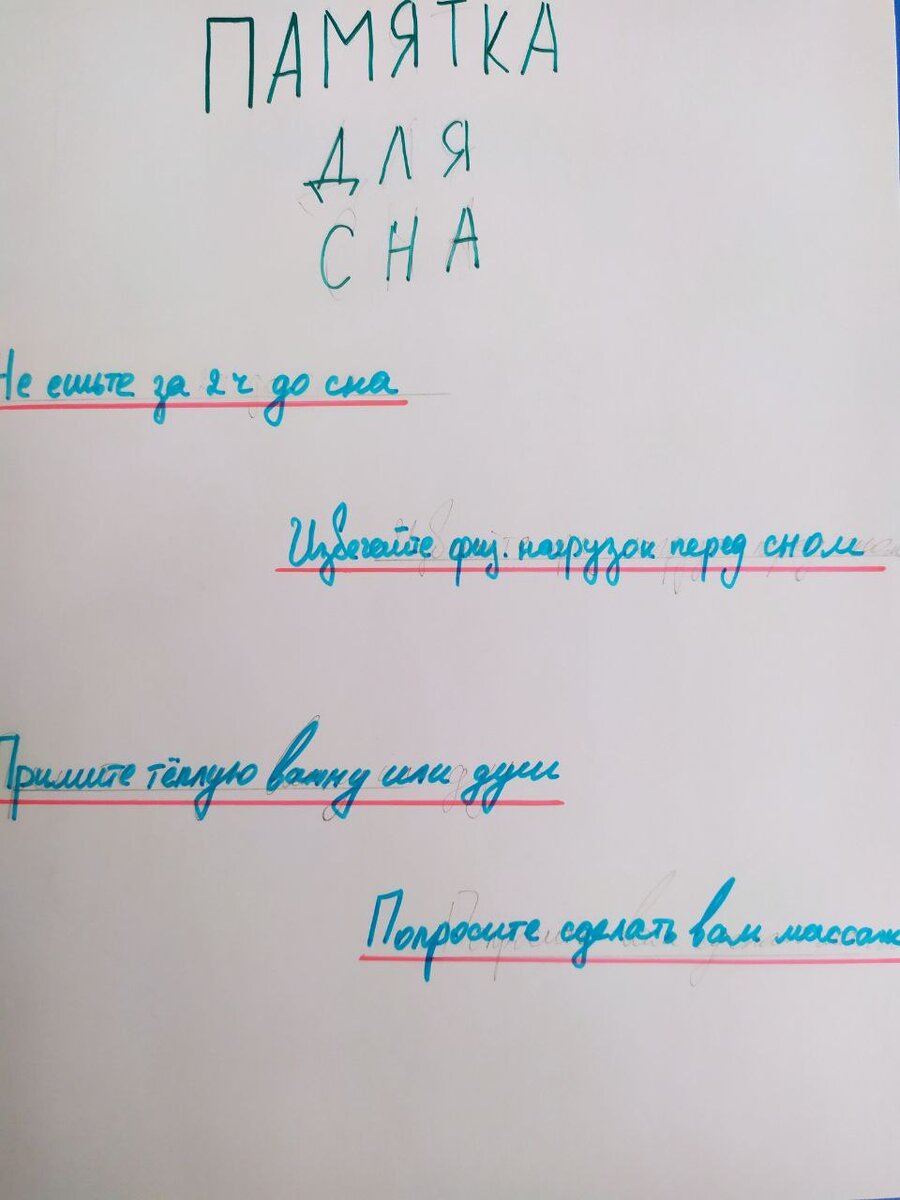 ПАМЯТКА
ДЛЯ
СНА
Не ешьте за 2 ч до сна
Избегайте физ. нагрузок перед сном
Примите тёплую ванну или душ
Попросите сделать вам массаж